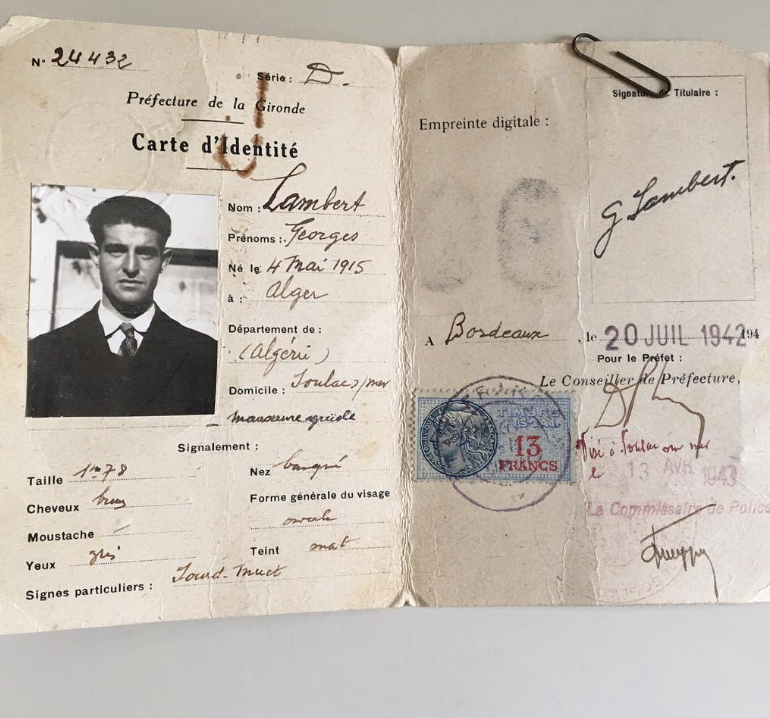 N° 24432
Série : D.
Préfecture de la Gironde
Carte d'Identité
Nom : Lambert
Prénoms : Georges
Né le 4 Mai 1915
à : Alger
Département de :
(Algérie)
Domicile : Soulac s/mer
manoeuvre agricole
Signalement :
Taille 1m78
Cheveux brun
Moustache -
Yeux gris
Nez busqué
Forme générale du visage
ovale
Teint mat
Signes particuliers : Sourd-Muet
Empreinte digitale :
Signature du Titulaire :
G Lambert.
A Bordeaux, le 20 JUIL 1942 194
Pour le Préfet :
Le Conseiller de Préfecture,
TIMBRE
FISCAL
13
FRANCS
Visé à Soulac sur mer
le 13 AVR 1943
Le Commissaire de Police